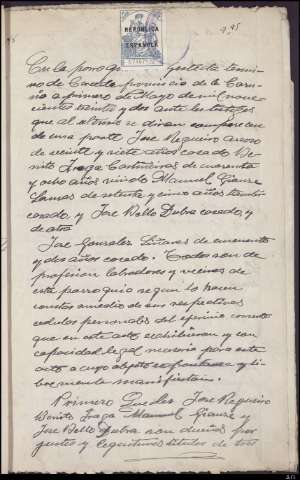 9.95
REPÚBLICA
ESPAÑOLA
En la parroquia termi-
no de provincia de la Coru-
ña a primero de Mayo de mil nove-
cientos treinta y dos ante los testigos
que al último se diran comparecen
de una parte José Regueiro
de veinte y siete años casado Be-
nito Fraga Castiñeiras de cuarenta
y ocho años viudo Manuel
Lamas de setenta y cinco años tambien
casado, y José Bello Dubra casado, y
de otra
José Gonzalez Liñares de cincuenta
y dos años casado: Todos son de
profesion labradores y vecinos de
esta parroquia segun lo hacen
constar medio de sus respectivas
cedulas personales del ejercicio corriente
que en este acto exhibieron y con
capacidad legal necesaria para este
acto a cuyo objeto espontanea y li-
bremente manifiestan.
Primero José Regueiro
Benito Fraga Manuel y
José Bello Dubra son dueños por
justos y legitimos titulos de